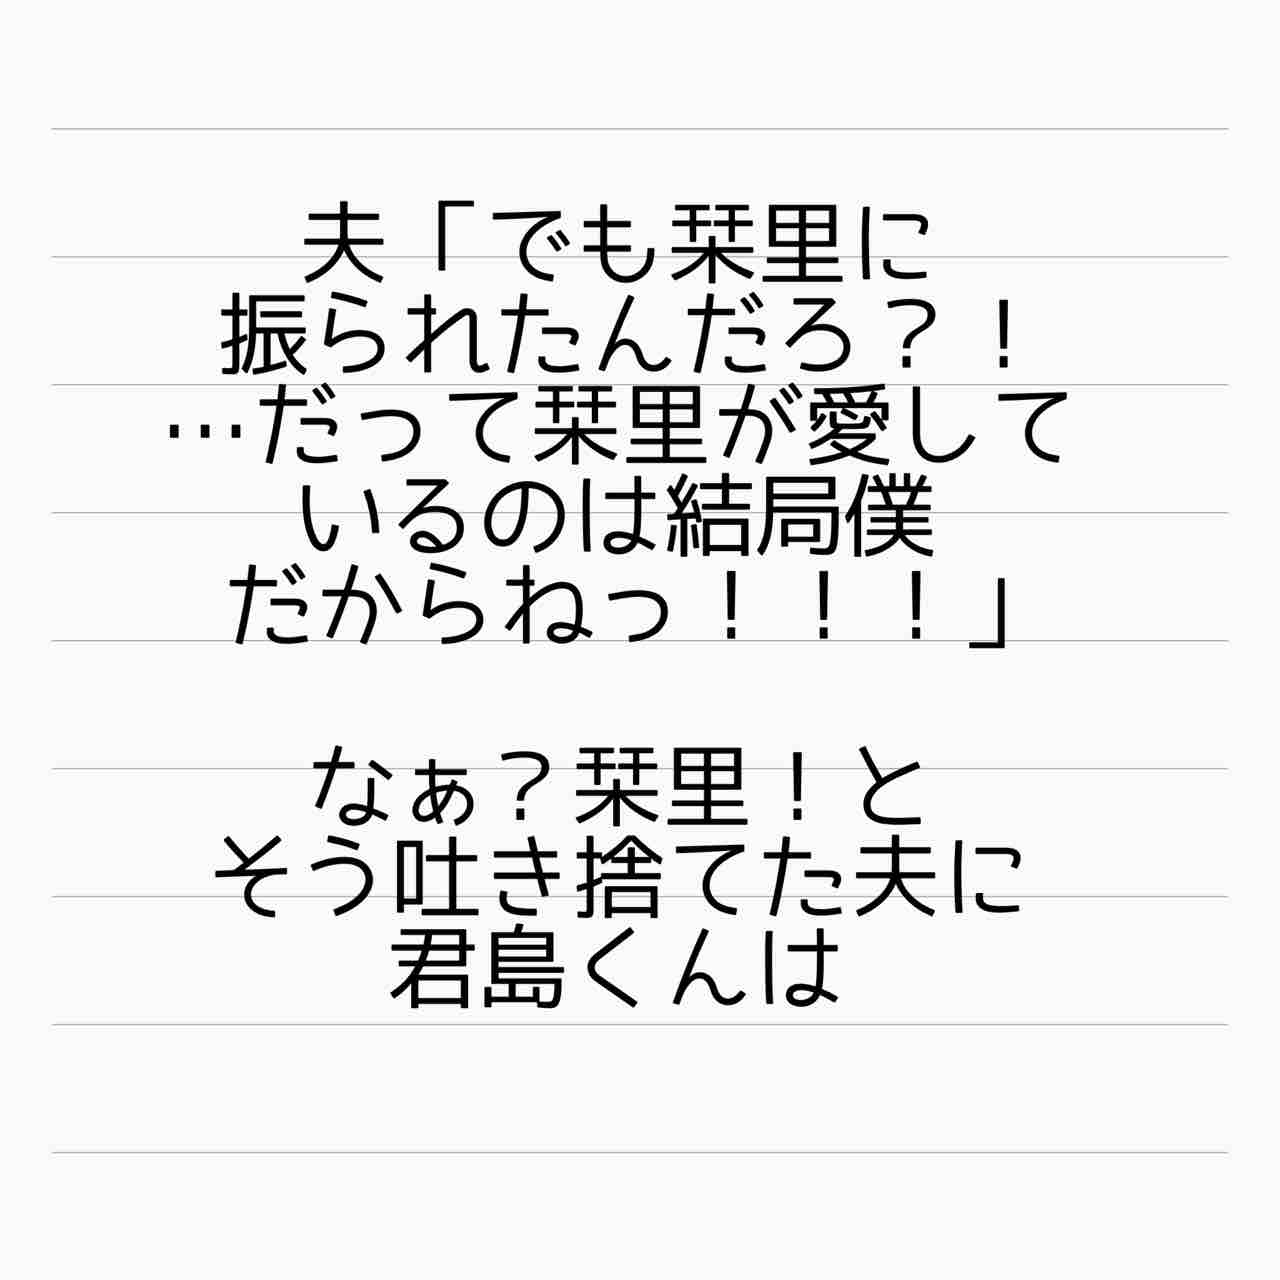 夫「でも栞里に
振られたんだろ？！
…だって栞里が愛して
いるのは結局僕
だからねっ！！！」
なぁ？栞里！と
そう吐き捨てた夫に
君島くんは